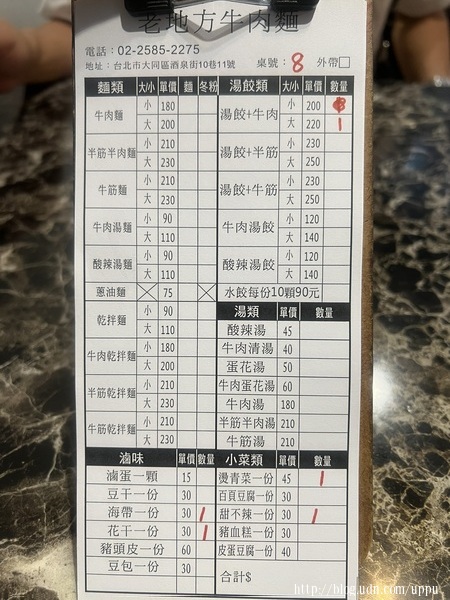 老地方牛肉麵
電話：02-2585-2275
地址：台北市大同區酒泉街10巷11號 桌號：8 外帶□
麵類 大小 單價 麵 冬粉 湯餃類 大小 單價 數量
牛肉麵 小 180 湯餃+牛肉 小 200
大 200 大 220 1
半筋半肉麵 小 210 湯餃+半筋 小 230
大 230 大 250
牛筋麵 小 210 湯餃+牛筋 小 230
大 230 大 250
牛肉湯麵 小 90 牛肉湯餃 小 120
大 110 大 140
酸辣湯麵 小 90 酸辣湯餃 小 120
大 110 大 140
蔥油麵 75 水餃每份10顆90元
乾拌麵 小 90 湯類 單價 數量
大 110 酸辣湯 45
牛肉乾拌麵 小 180 牛肉清湯 40
大 200 蛋花湯 50
半筋乾拌麵 小 210 牛肉蛋花湯 60
大 230 牛肉湯 180
牛筋乾拌麵 小 210 半筋半肉湯 210
大 230 牛筋湯 210
滷味 單價 數量 小菜類 單價 數量
滷蛋一顆 15 燙青菜一份 45 1
豆干一份 30 百頁豆腐一份 30
海帶一份 30 1 甜不辣一份 30 1
花干一份 30 1 豬血糕一份 30
豬頭皮一份 60 皮蛋豆腐一份 40
豆包一份 30 合計$
http://blog.udn.com/uppu